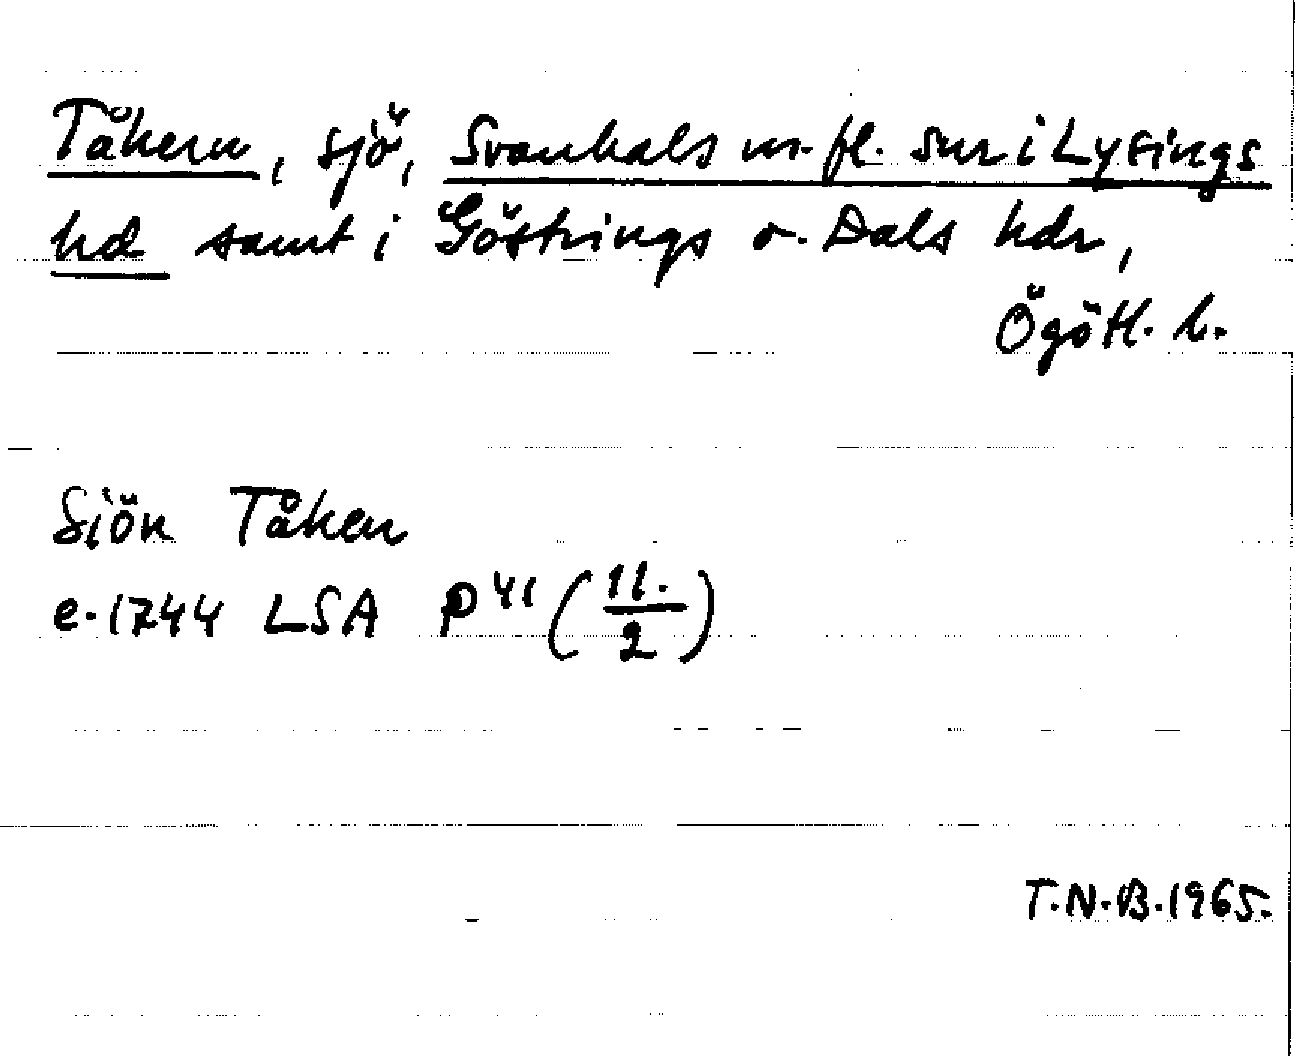 Tåkern, sjö, Svanhals m. fl. snr i Lysings
hd samt i Göstrings o. Dals hdr,
Ögötl. l.
Siön Tåken
e. 1744 LSA P 41 (11./2)
T.N.B. 1965.